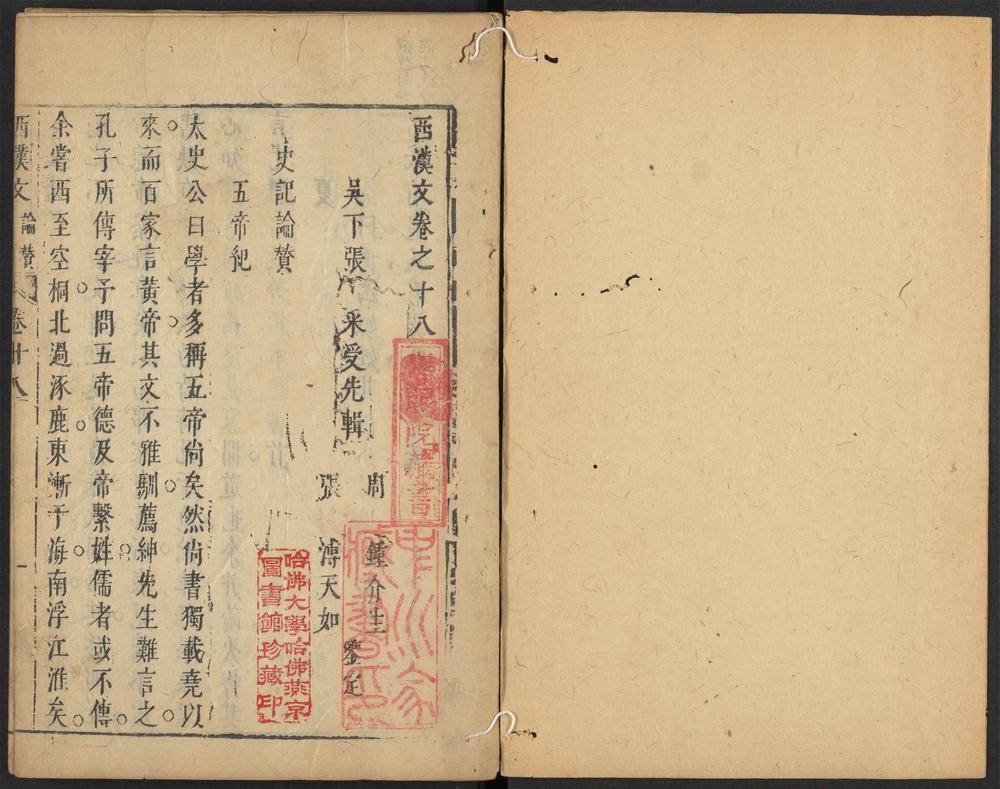 西漢文卷之十八
吳下張 采受先輯
周 鍾介生
張 溥天如
鑒定
史記論贊
五帝紀
太史公曰學者多稱五帝尙矣然尙書獨載堯以
來而百家言黃帝其文不雅馴薦紳先生難言之
孔子所傳宰予問五帝德及帝繫姓儒者或不傳
余嘗西至空桐北過涿鹿東漸于海南浮江淮矣
西漢文 論贊 卷十八 一
哈佛大學哈佛燕京
圖書館珍藏印
院藏書